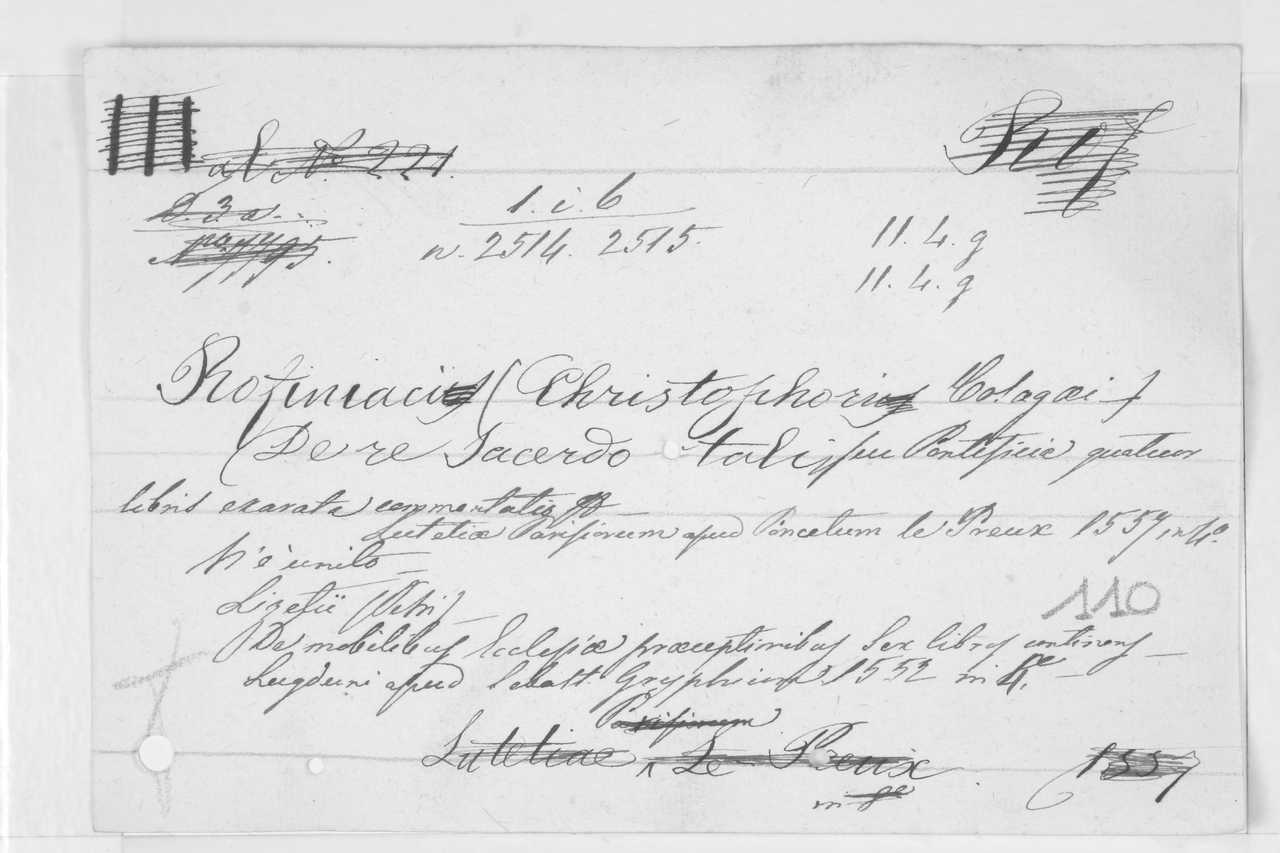 al No 221.
Rof
D 3 a...
1. i. 6
n. 2514. 2515.
11. 4. g
11. 4. g
Rofiniaci (Christophori
De re Sacerdotali, seu Pontificia quatuor
libris exarata commentatio
Lutetiæ Parisiorum apud Poncetum le Preux 1557 in 4o.
N'è unito
Lizetii (Petri)
De mobilibus Ecclesiæ præceptionibus sex libros continens
110
Lugduni apud Sebast Gryphium 1552 in 4.o
Parisiorum
Lutetiae Le Preux
1557
in 8o